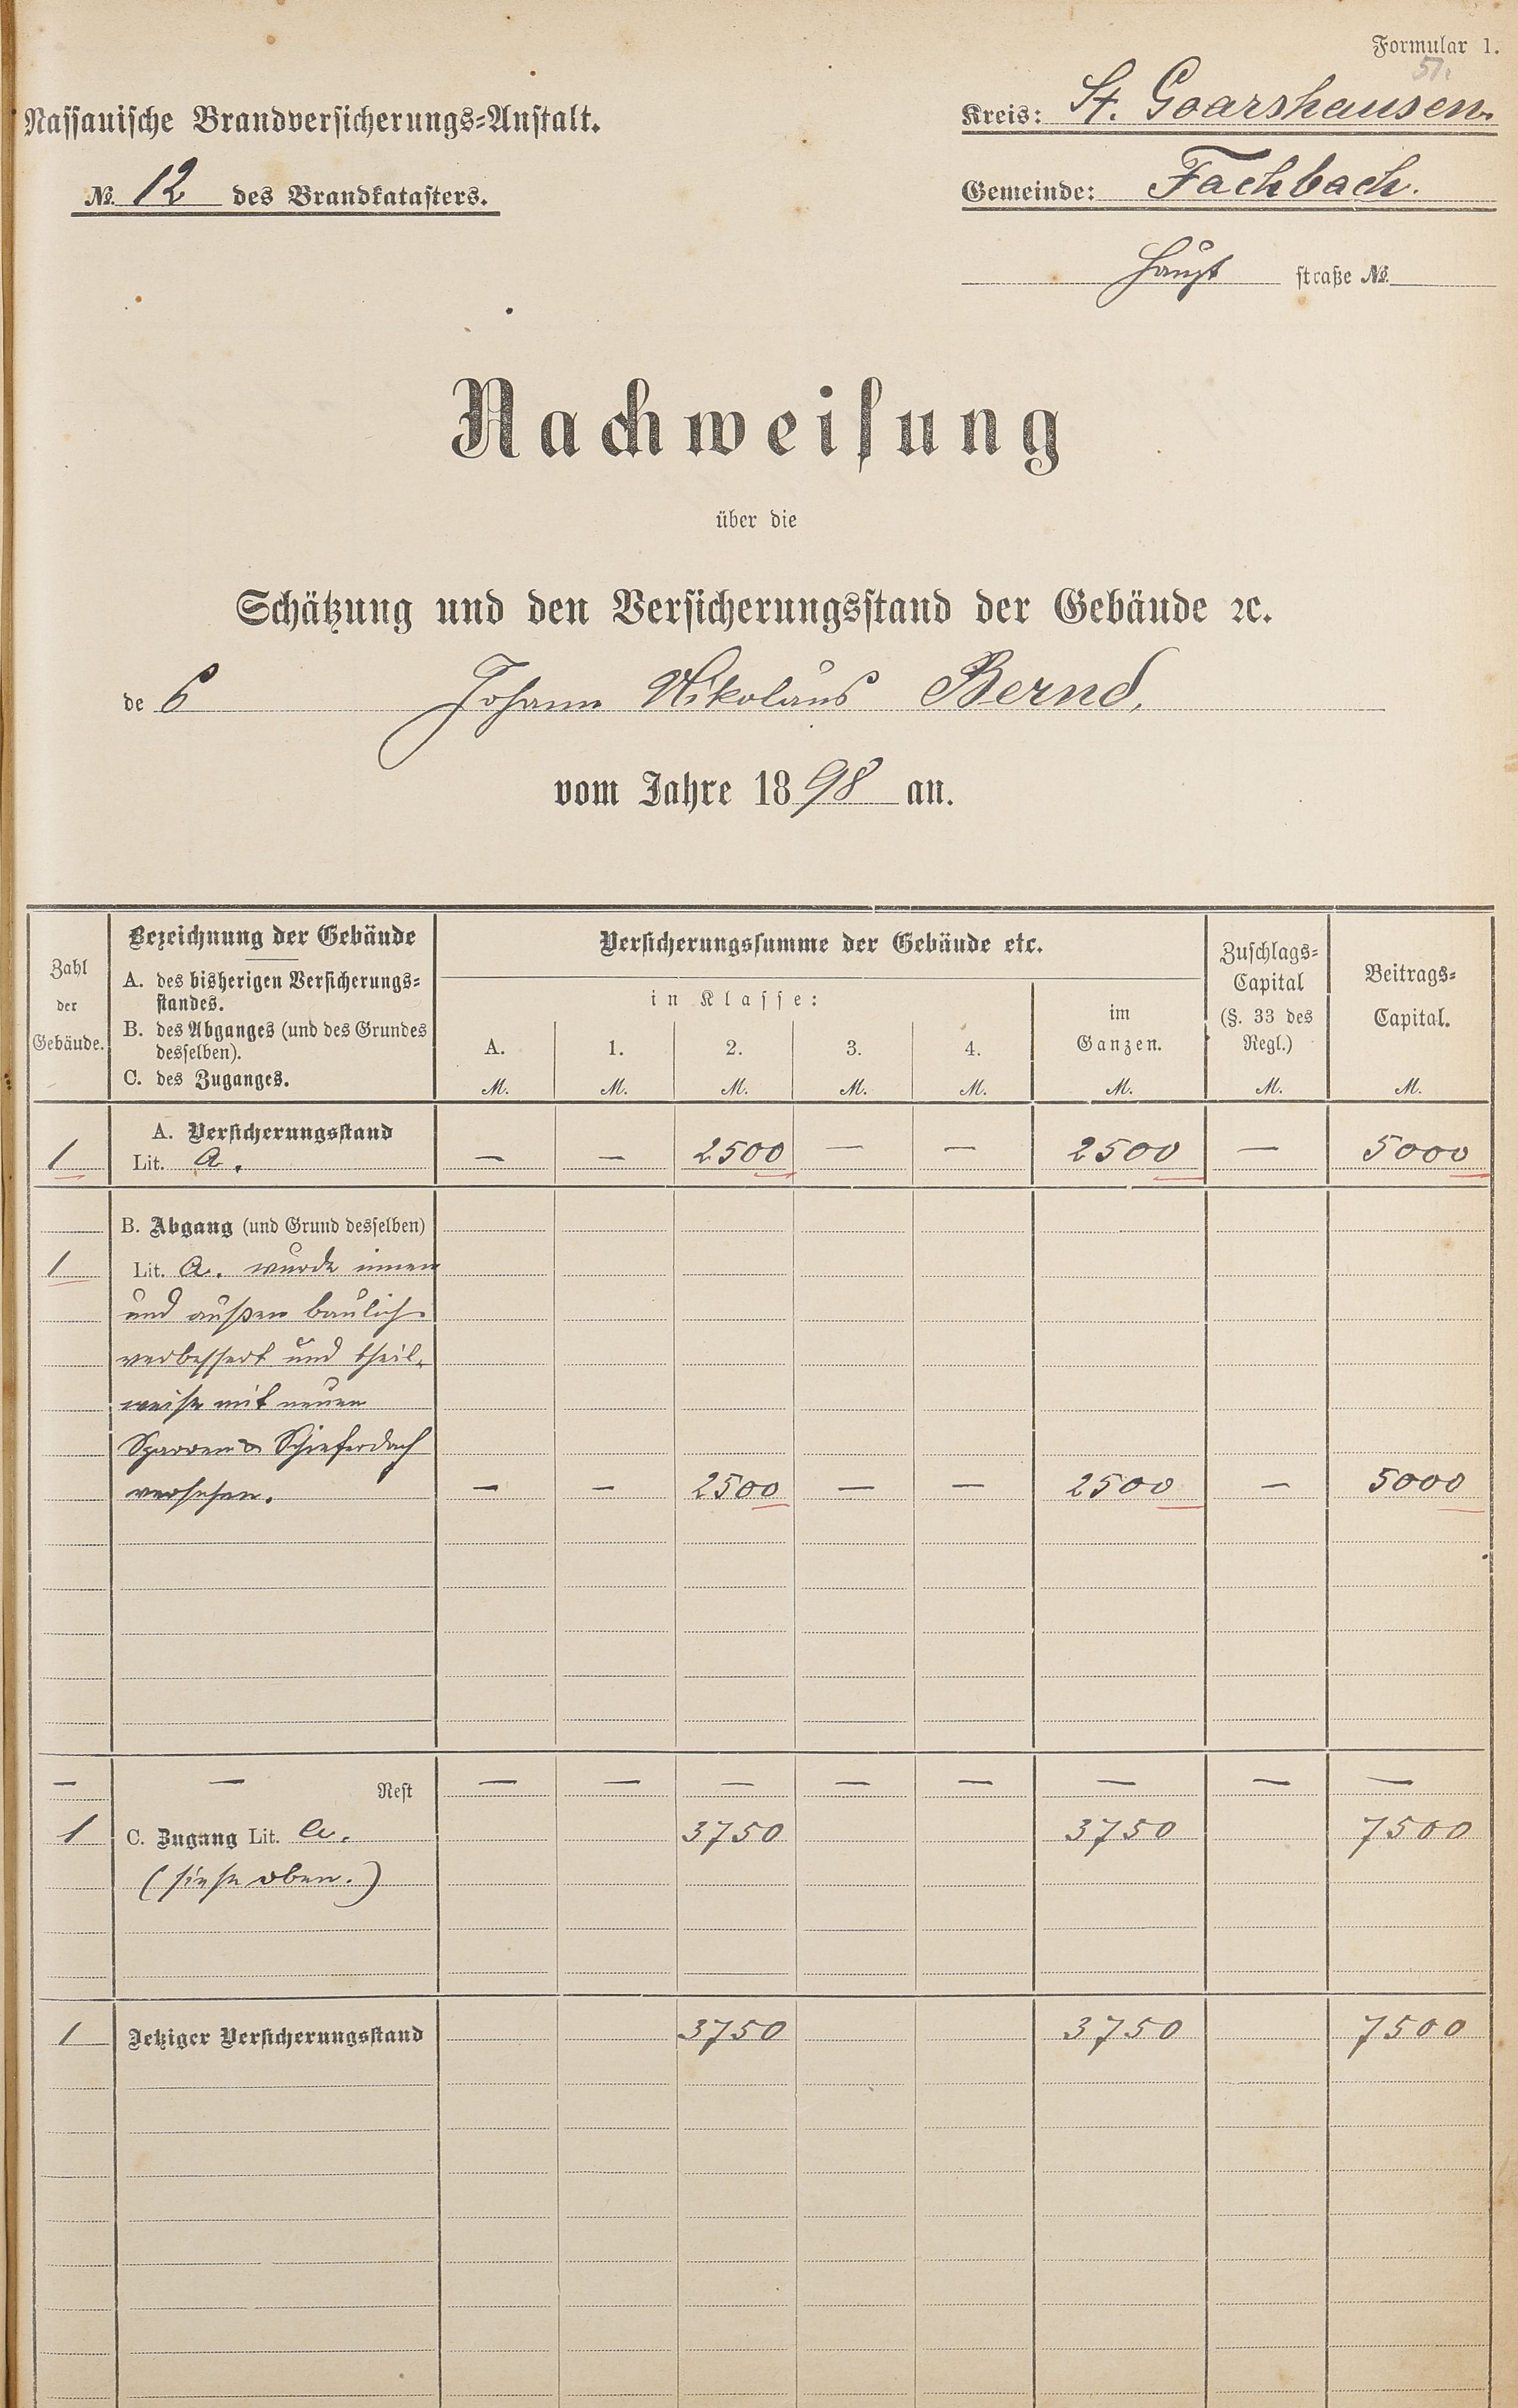 Formular 1.
51.
Nassauische Brandversicherungs-Anstalt.
Kreis: St. Goarshausen.
№ 12 des Brandkatasters.
Gemeinde: Fachbach.
Haupt straße №
Nachweisung
über die
Schätzung und den Versicherungsstand der Gebäude ꝛc.
des Johann Nikolaus Bernd.
vom Jahre 1898 an.
Zahl der Gebäude.
Bezeichnung der Gebäude
A. des bisherigen Versicherungs-
standes.
B. des Abganges (und des Grundes
desselben).
C. des Zuganges.
Versicherungssumme der Gebäude etc.
in Klasse:
A. 1. 2. 3. 4.
im Ganzen.
Zuschlags-
Capital
(§. 33 des
Regl.)
Beitrags-
Capital.
M. M. M. M. M. M. M. M.
A. Versicherungsstand
1 Lit. a. — — 2500 — — 2500 — 5000
B. Abgang (und Grund desselben)
1 Lit. a. wurde innen
und außen baulich
verbessert und theil-
weise mit neuen
Sparren & Schieferdach
versehen. — — 2500 — — 2500 — 5000
— — Rest — — — — — — — —
1 C. Zugang Lit. a. 3750 3750 7500
(siehe oben.)
1 Jetziger Versicherungsstand 3750 3750 7500